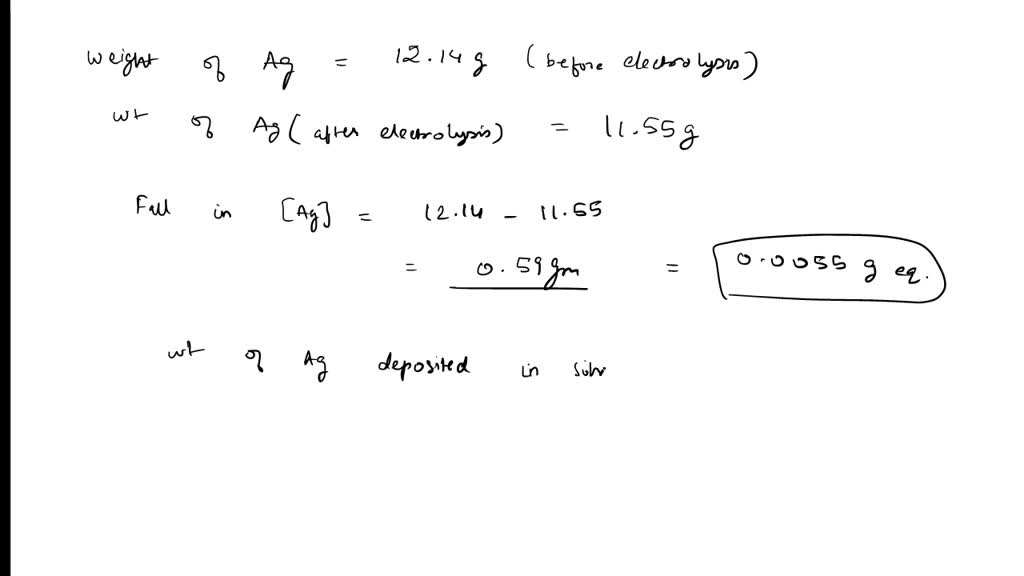 weight of Ag = 12.14 g (before electrolysis)
wt of Ag (after electrolysis) = 11.55 g
Fall in [Ag] = 12.14 - 11.55
= 0.59 gm = 0.0055 g eq.
wt of Ag deposited in silv